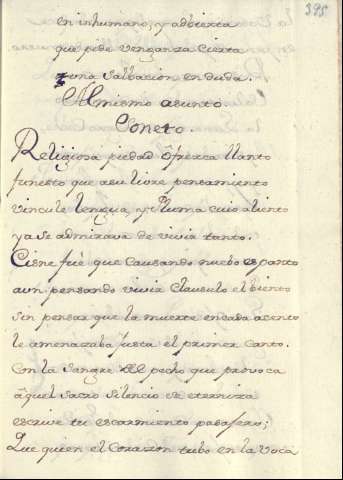 395
en inhumano; y advierta
que pide venganza cierta
y una salbacion en duda.
Al mismo asunto
Soneto.
Religiosa piedad ofresca llanto
funesto que a su livre pensamiento
vincule lengua, y Pluma cuio aliento
ya se admirava de vivir tanto.
Cisne fué que causando nuebo espanto
aun pensando vivir clausulo el biento
sin pensar que la muerte en cada acento
le amenazaba justa el primer canto.
Con la Sangre del pecho que provoca
aquel Sacro Silencio se eterniza
escrive tu escarmiento pasajero;
Que quien el Corazon tubo en la Voca